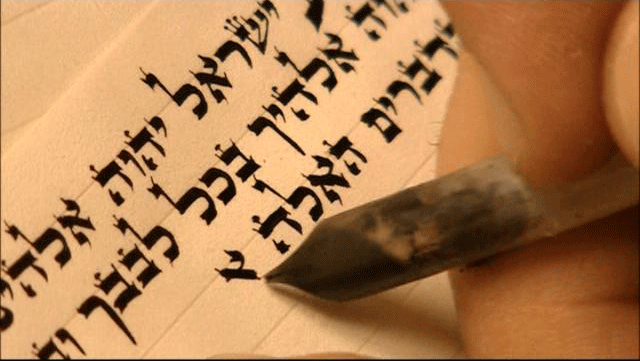 ישראל יהוה אלהי
אלהיך בכל לבבך
הדברים האלה